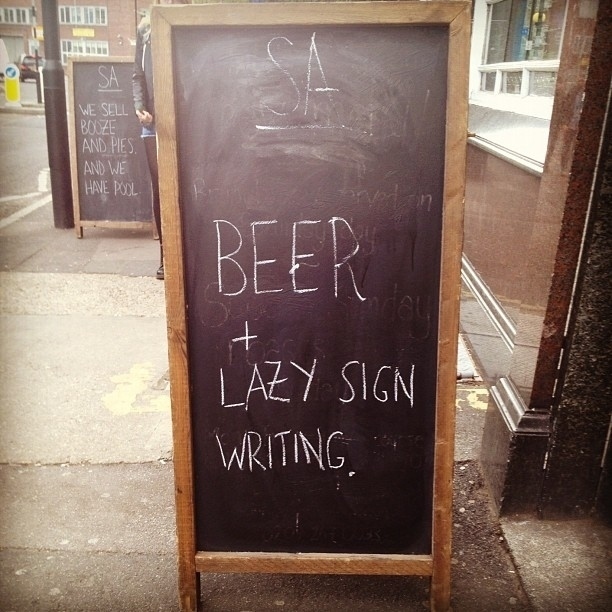 SA
BEER
+
LAZY SIGN
WRITING.
SA
WE SELL
BOOZE
AND PIES.
AND WE
HAVE POOL